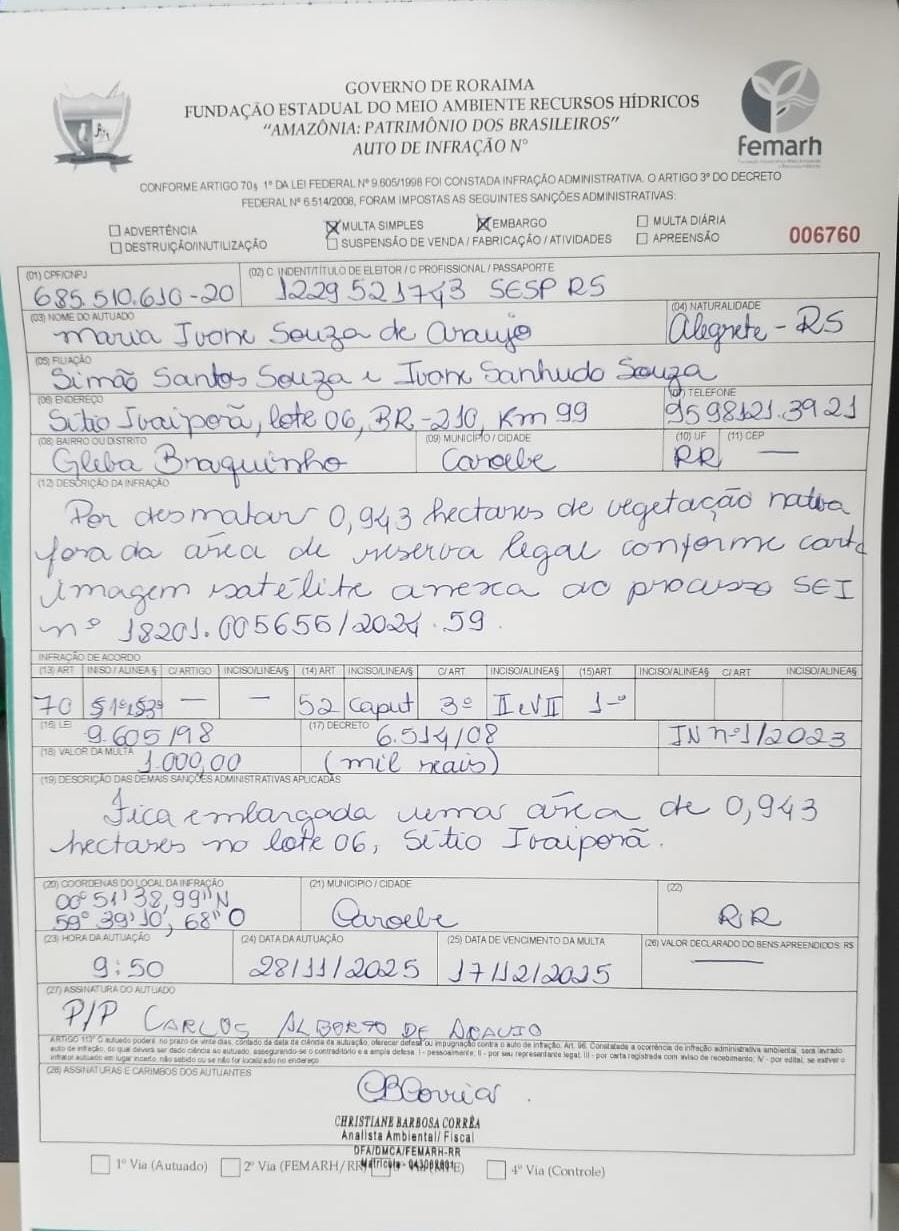 GOVERNO DE RORAIMA
FUNDAÇÃO ESTADUAL DO MEIO AMBIENTE RECURSOS HÍDRICOS
"AMAZÔNIA: PATRIMÔNIO DOS BRASILEIROS"
AUTO DE INFRAÇÃO N°
Femarh
CONFORME ARTIGO 70§ 1° DA LEI FEDERAL N° 9.605/1998 FOI CONSTADA INFRAÇÃO ADMINISTRATIVA. O ARTIGO 3° DO DECRETO
FEDERAL N° 6.514/2008, FORAM IMPOSTAS AS SEGUINTES SANÇÕES ADMINISTRATIVAS:
ADVERTÊNCIA MULTA SIMPLES EMBARGO MULTA DIÁRIA
DESTRUIÇÃO/INUTILIZAÇÃO SUSPENSÃO DE VENDA / FABRICAÇÃO / ATIVIDADES APREENSÃO 006760
(01) CPF/CNPJ (02) C. INDENT/TÍTULO DE ELEITOR / C PROFISSIONAL / PASSAPORTE
685.510.610-20 1229521743 SESP RS
(03) NOME DO AUTUADO (04) NATURALIDADE
Maria Ivone Souza de Araujo Alegrete - RS
(05) FILIAÇÃO
Simão Santos Souza e Ivone Sanhudo Souza
(06) ENDEREÇO (07) TELEFONE
Sítio Ivaiporã, lote 06, BR-210, Km 99 9598121.3921
(08) BAIRRO OU DISTRITO (09) MUNICÍPIO / CIDADE (10) UF (11) CEP
Gleba Braquinho Caroebe RR —
(12) DESCRIÇÃO DA INFRAÇÃO
Por desmatar 0,943 hectares de vegetação nativa
fora da área de reserva legal conforme carta
imagem satélite anexa ao processo SEI
nº 18201.005656/2024.59
INFRAÇÃO DE ACORDO
(13) ART INISO / ALINEA § C/ ARTIGO INCISO/LINEA/§ (14) ART INCISO/LINEA/§ C/ ART INCISO/ALINEA§ (15)ART INCISO/ALINEA§ C/ ART INCISO/ALINEA§
70 §1º e §3º — — 52 Caput 3º II e VII 1º
(16) LEI (17) DECRETO
9.605/98 6.514/08 IN nº1/2023
(18) VALOR DA MULTA
1.000,00 (mil reais)
(19) DESCRIÇÃO DAS DEMAIS SANÇÕES ADMINISTRATIVAS APLICADAS
Fica embargada uma área de 0,943
hectares no lote 06, Sítio Ivaiporã.
(20) COORDENAS DO LOCAL DA INFRAÇÃO (21) MUNICIPIO / CIDADE (22)
00° 51' 38,99" N
59° 39' 10', 68" O Caroebe RR
(23) HORA DA AUTUAÇÃO (24) DATA DA AUTUAÇÃO (25) DATA DE VENCIMENTO DA MULTA (26) VALOR DECLARADO DO BENS APREENDIDOS: RS
9:50 28/11/2025 17/12/2025 —
(27) ASSINATURA DO AUTUADO
P/P CARLOS ALBERTO DE ARAUJO
ARTIGO 113° O autuado poderá, no prazo de vinte dias, contado da data da ciência da autuação, oferecer defesa ou impugnação contra o auto de infração. Art. 96. Constatada a ocorrência de infração administrativa ambiental, será lavrado
auto de infração, do qual deverá ser dado ciência ao autuado, assegurando-se o contraditório e a ampla defesa. I - pessoalmente; II - por seu representante legal; III - por carta registrada com aviso de recebimento; IV - por edital, se estiver o
infrator autuado em lugar incerto, não sabido ou se não for localizado no endereço
(28) ASSINATURAS E CARIMBOS DOS AUTUANTES
CHRISTIANE BARBOSA CORRÊA
Analista Ambiental / Fiscal
DFA/DMCA/FEMARH-RR
1° Via (Autuado) 2° Via (FEMARH/RR) 4° Via (Controle)